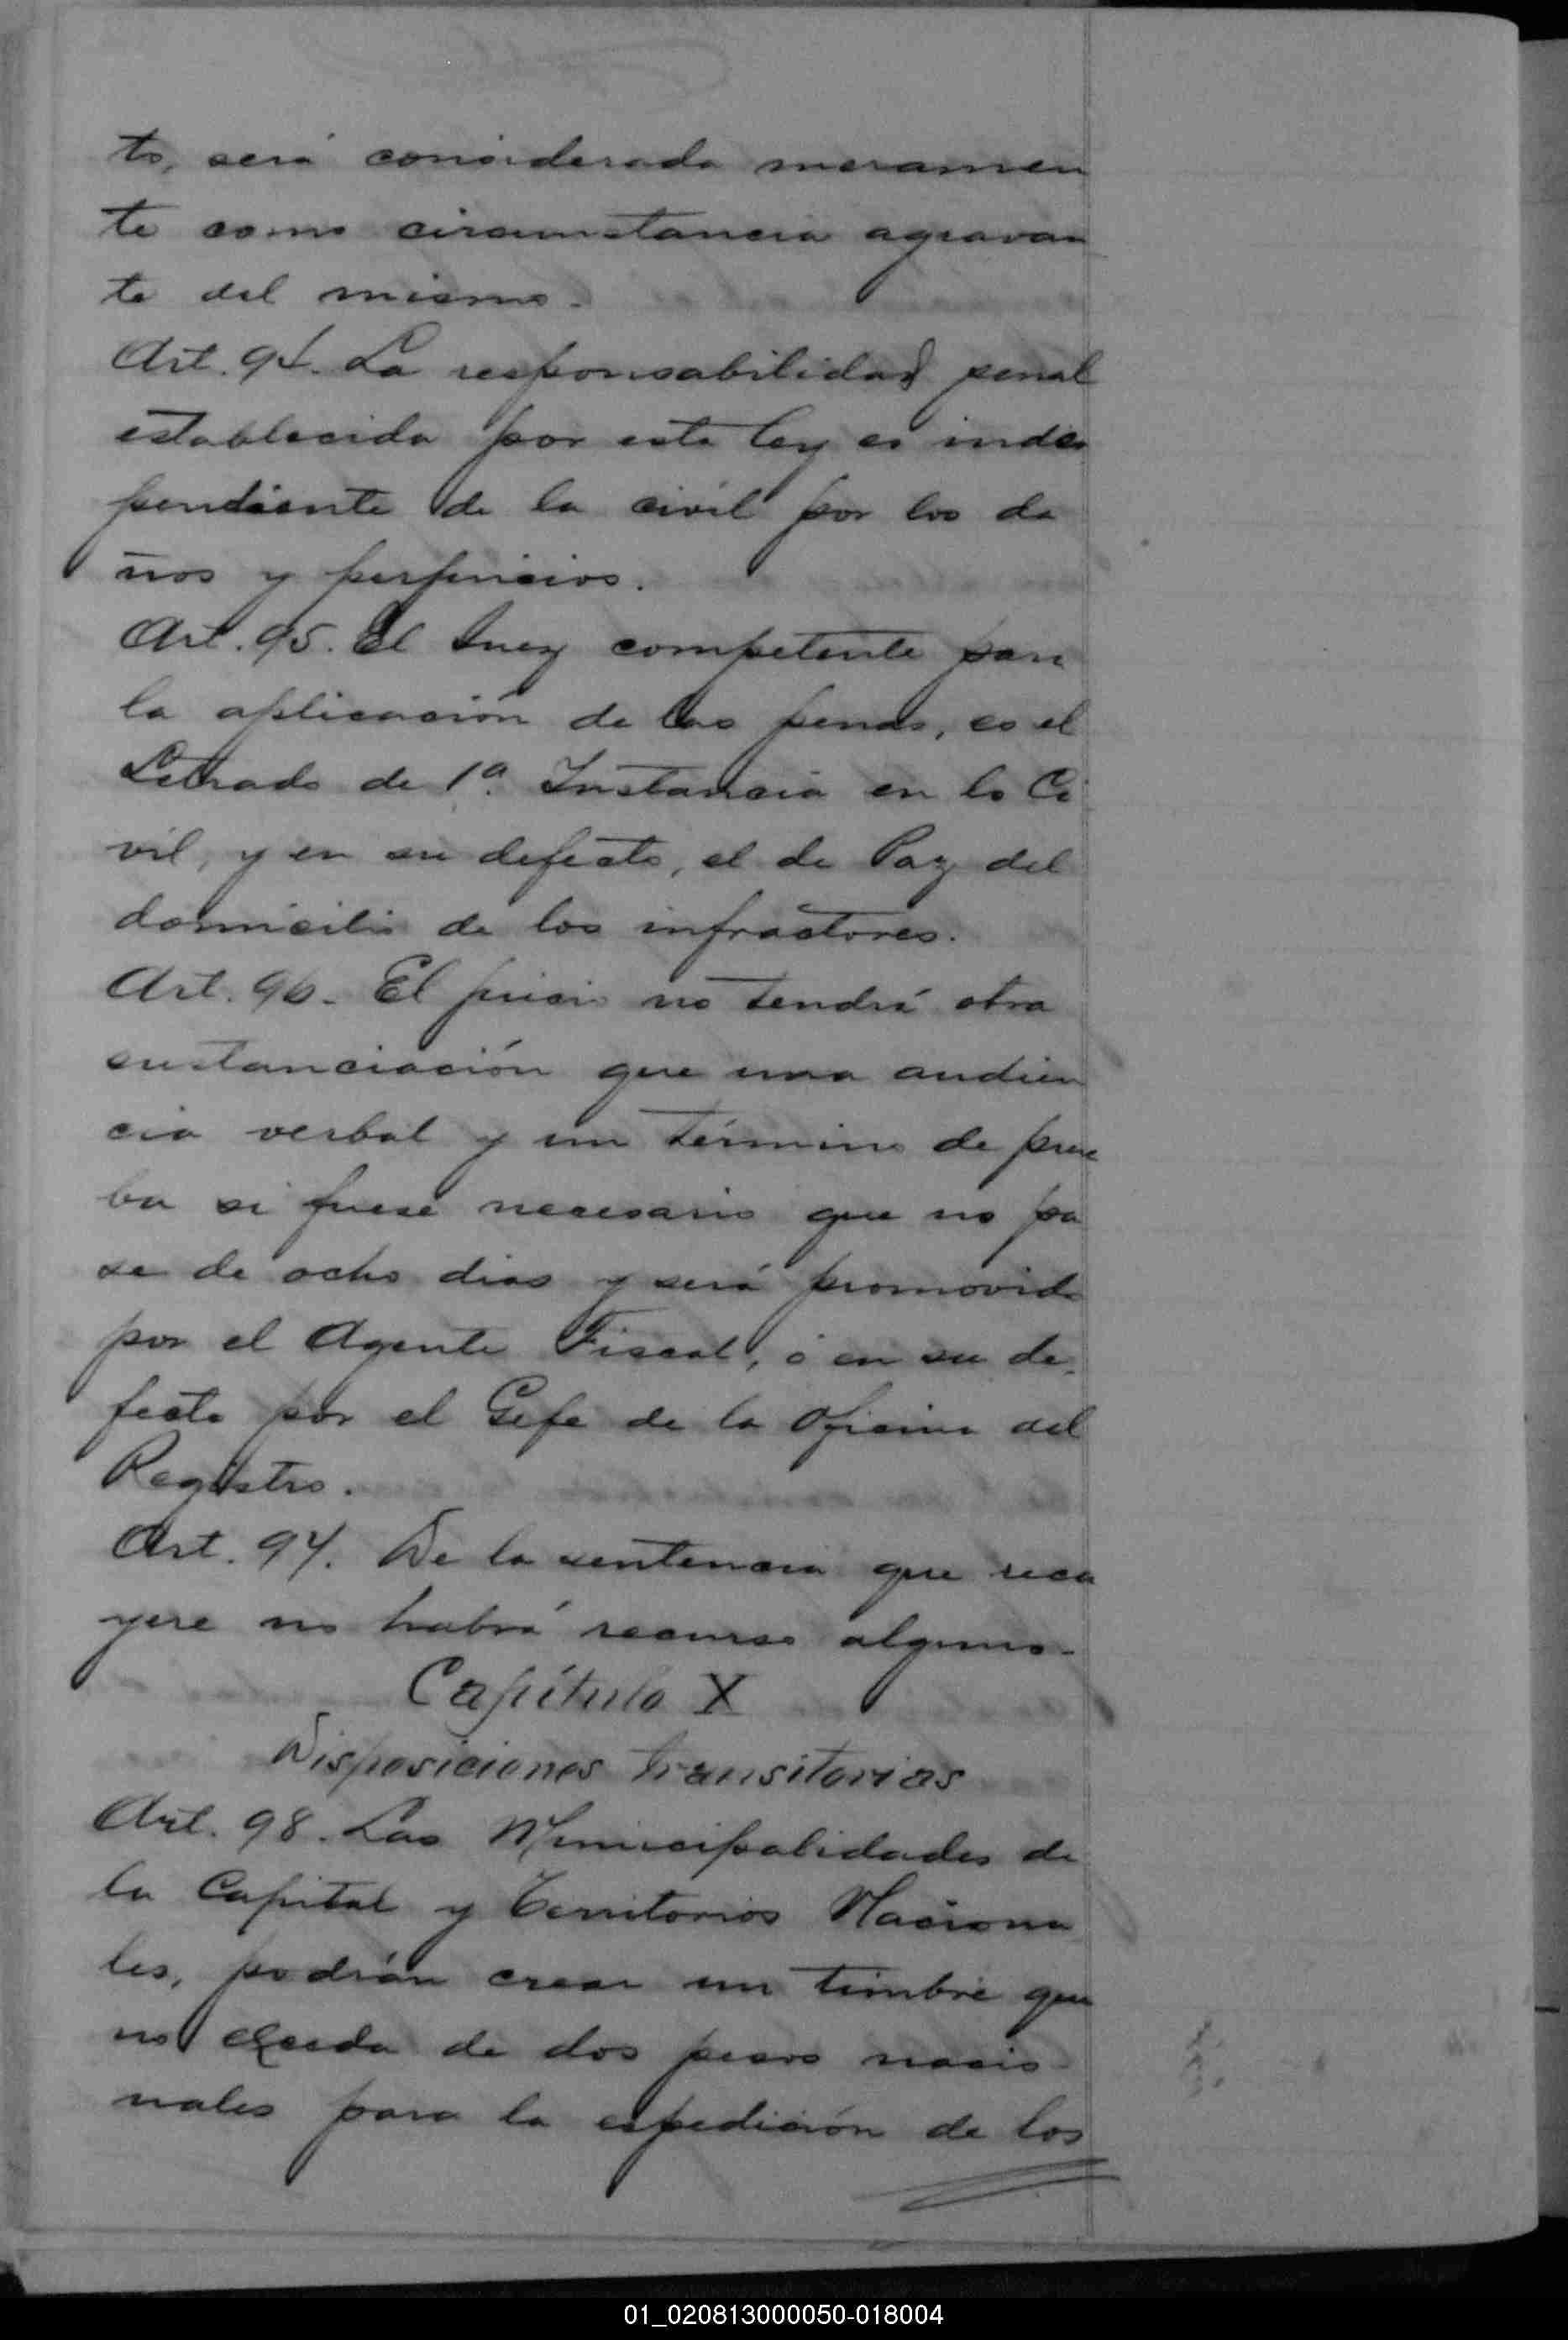 to, será considerada meramen
te como circunstancia agravan
te del mismo.
Art. 94. La responsabilidad penal
establecida por esta ley es inde
pendiente de la civil por los da
ños y perjuicios.
Art. 95. El Juez competente para
la aplicación de las penas, es el
Letrado de 1ª. Instancia en lo Ci
vil, y en su defecto, el de Paz del
domicilio de los infractores.
Art. 96. El juicio no tendrá otra
sustanciación que una audien
cia verbal y un término de prue
ba si fuese necesario que no pa
se de ocho dias y será promovido
por el Agente Fiscal, ó en su de
fecto por el Gefe de la Oficina del
Registro.
Art. 97. De la sentencia que reca
yere no habrá recurso alguno.
Capítulo X
Disposiciones transitorias
Art. 98. Las Municipalidades de
la Capital y Territorios Naciona
les, podrán crear un timbre que
no exceda de dos pesos nacio
nales para la espedición de los
01_020813000050-018004